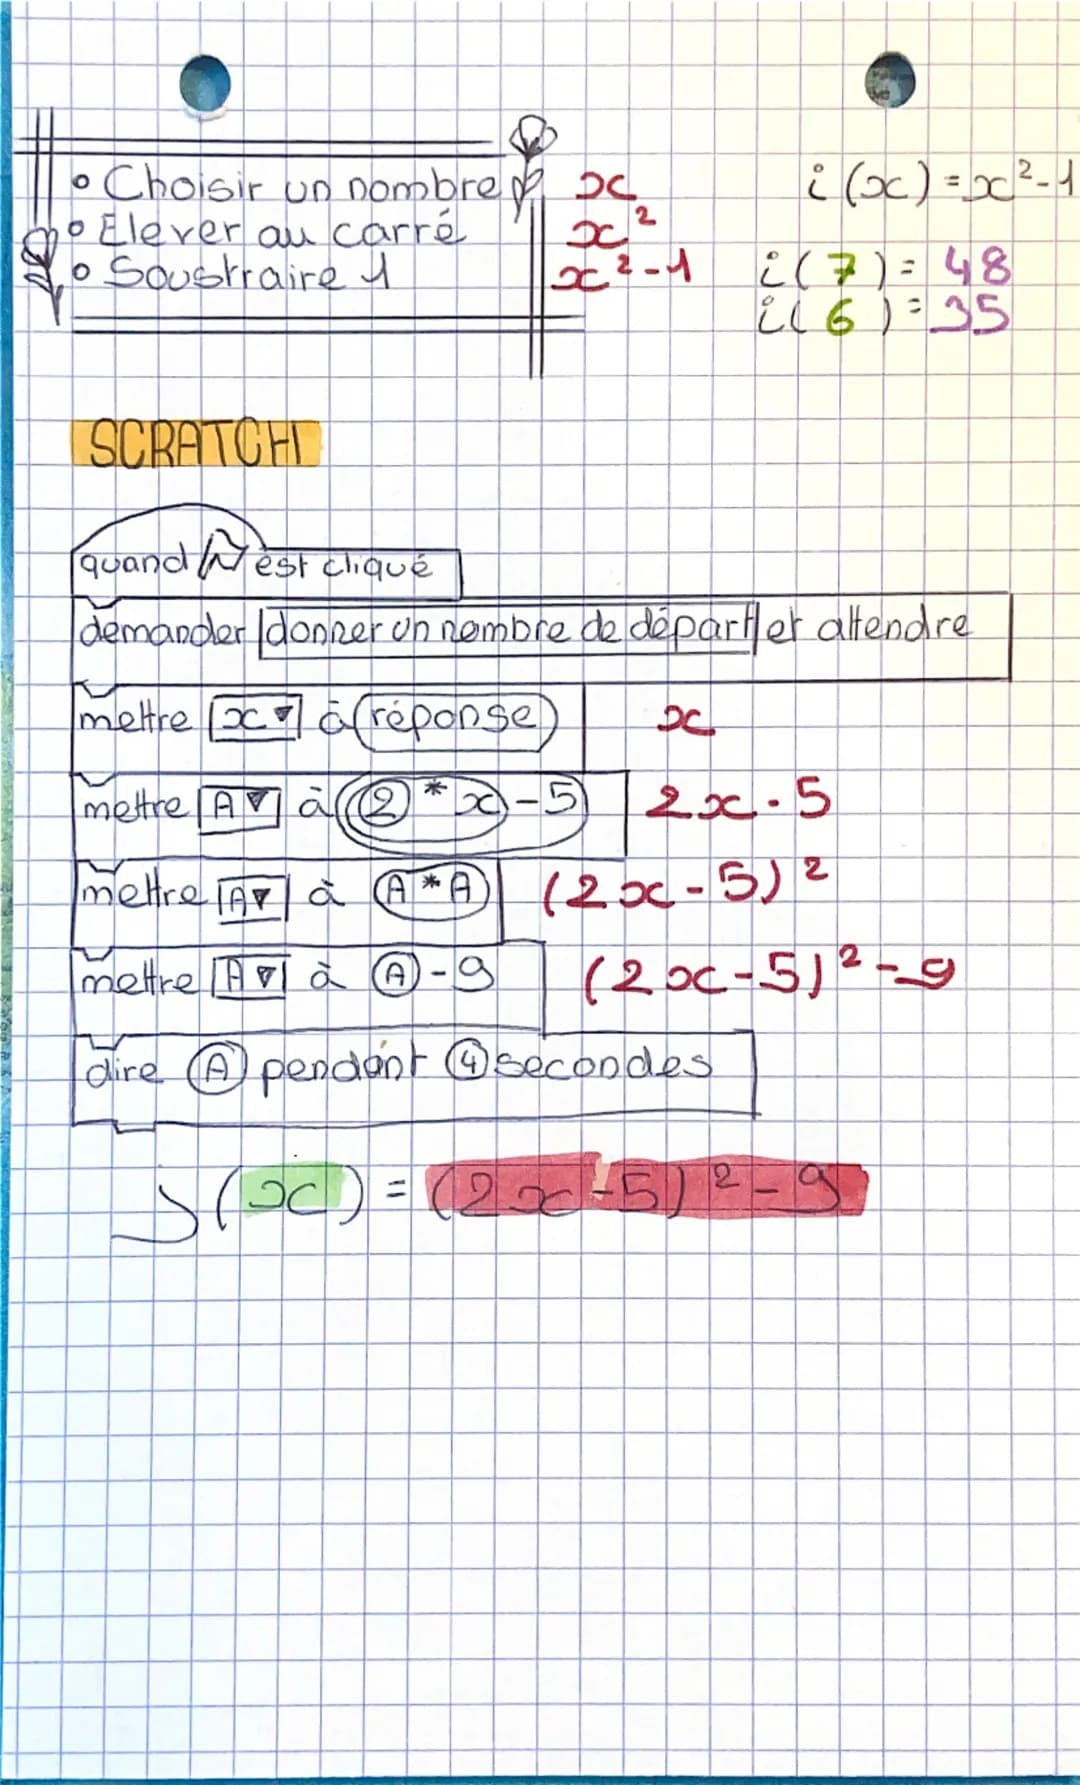 • Choisir un nombre x i(x)=x²-1
• Elever au carré x²
• Soustraire 1 x²-1 i(7)= 48
i(6)=35
SCRATCH
quand est cliqué
demander donner un nombre de départ et attendre
mettre x▼ à réponse x
mettre A▼ à 2 * x - 5 2x-5
mettre A▼ à A * A (2x-5)²
mettre A▼ à A - 9 (2x-5)²-9
dire A pendant 4 secondes
j(x) = (2x-5)²-9